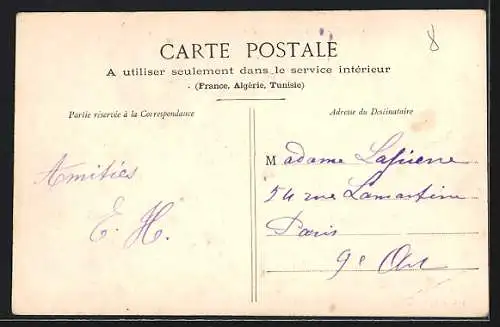 8
CARTE POSTALE
A utiliser seulement dans le service intérieur
(France, Algérie, Tunisie)
Partie réservée à la Correspondance
Adresse du Destinataire
Amitiés
E. H.
Madame
54 rue Lamartine
Paris
9e Art